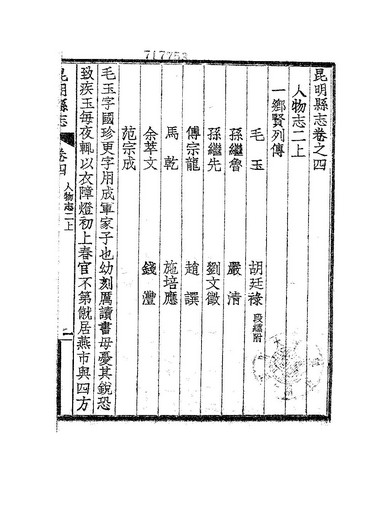 717753
昆明縣志卷之四
人物志二上
一鄉賢列傳
毛玉 胡廷祿 段繡附
孫繼魯 嚴清
孫繼先 劉文徵
傅宗龍 趙譔
馬乾 施培應
余萃文 錢灃
范宗成
毛玉字國珍更字用成軍家子也幼刻厲讀書母憂其銳恐
致疾玉每夜輒以衣障燈初上春官不第僦居燕市與四方
昆明縣志 卷四 人物志二上 一